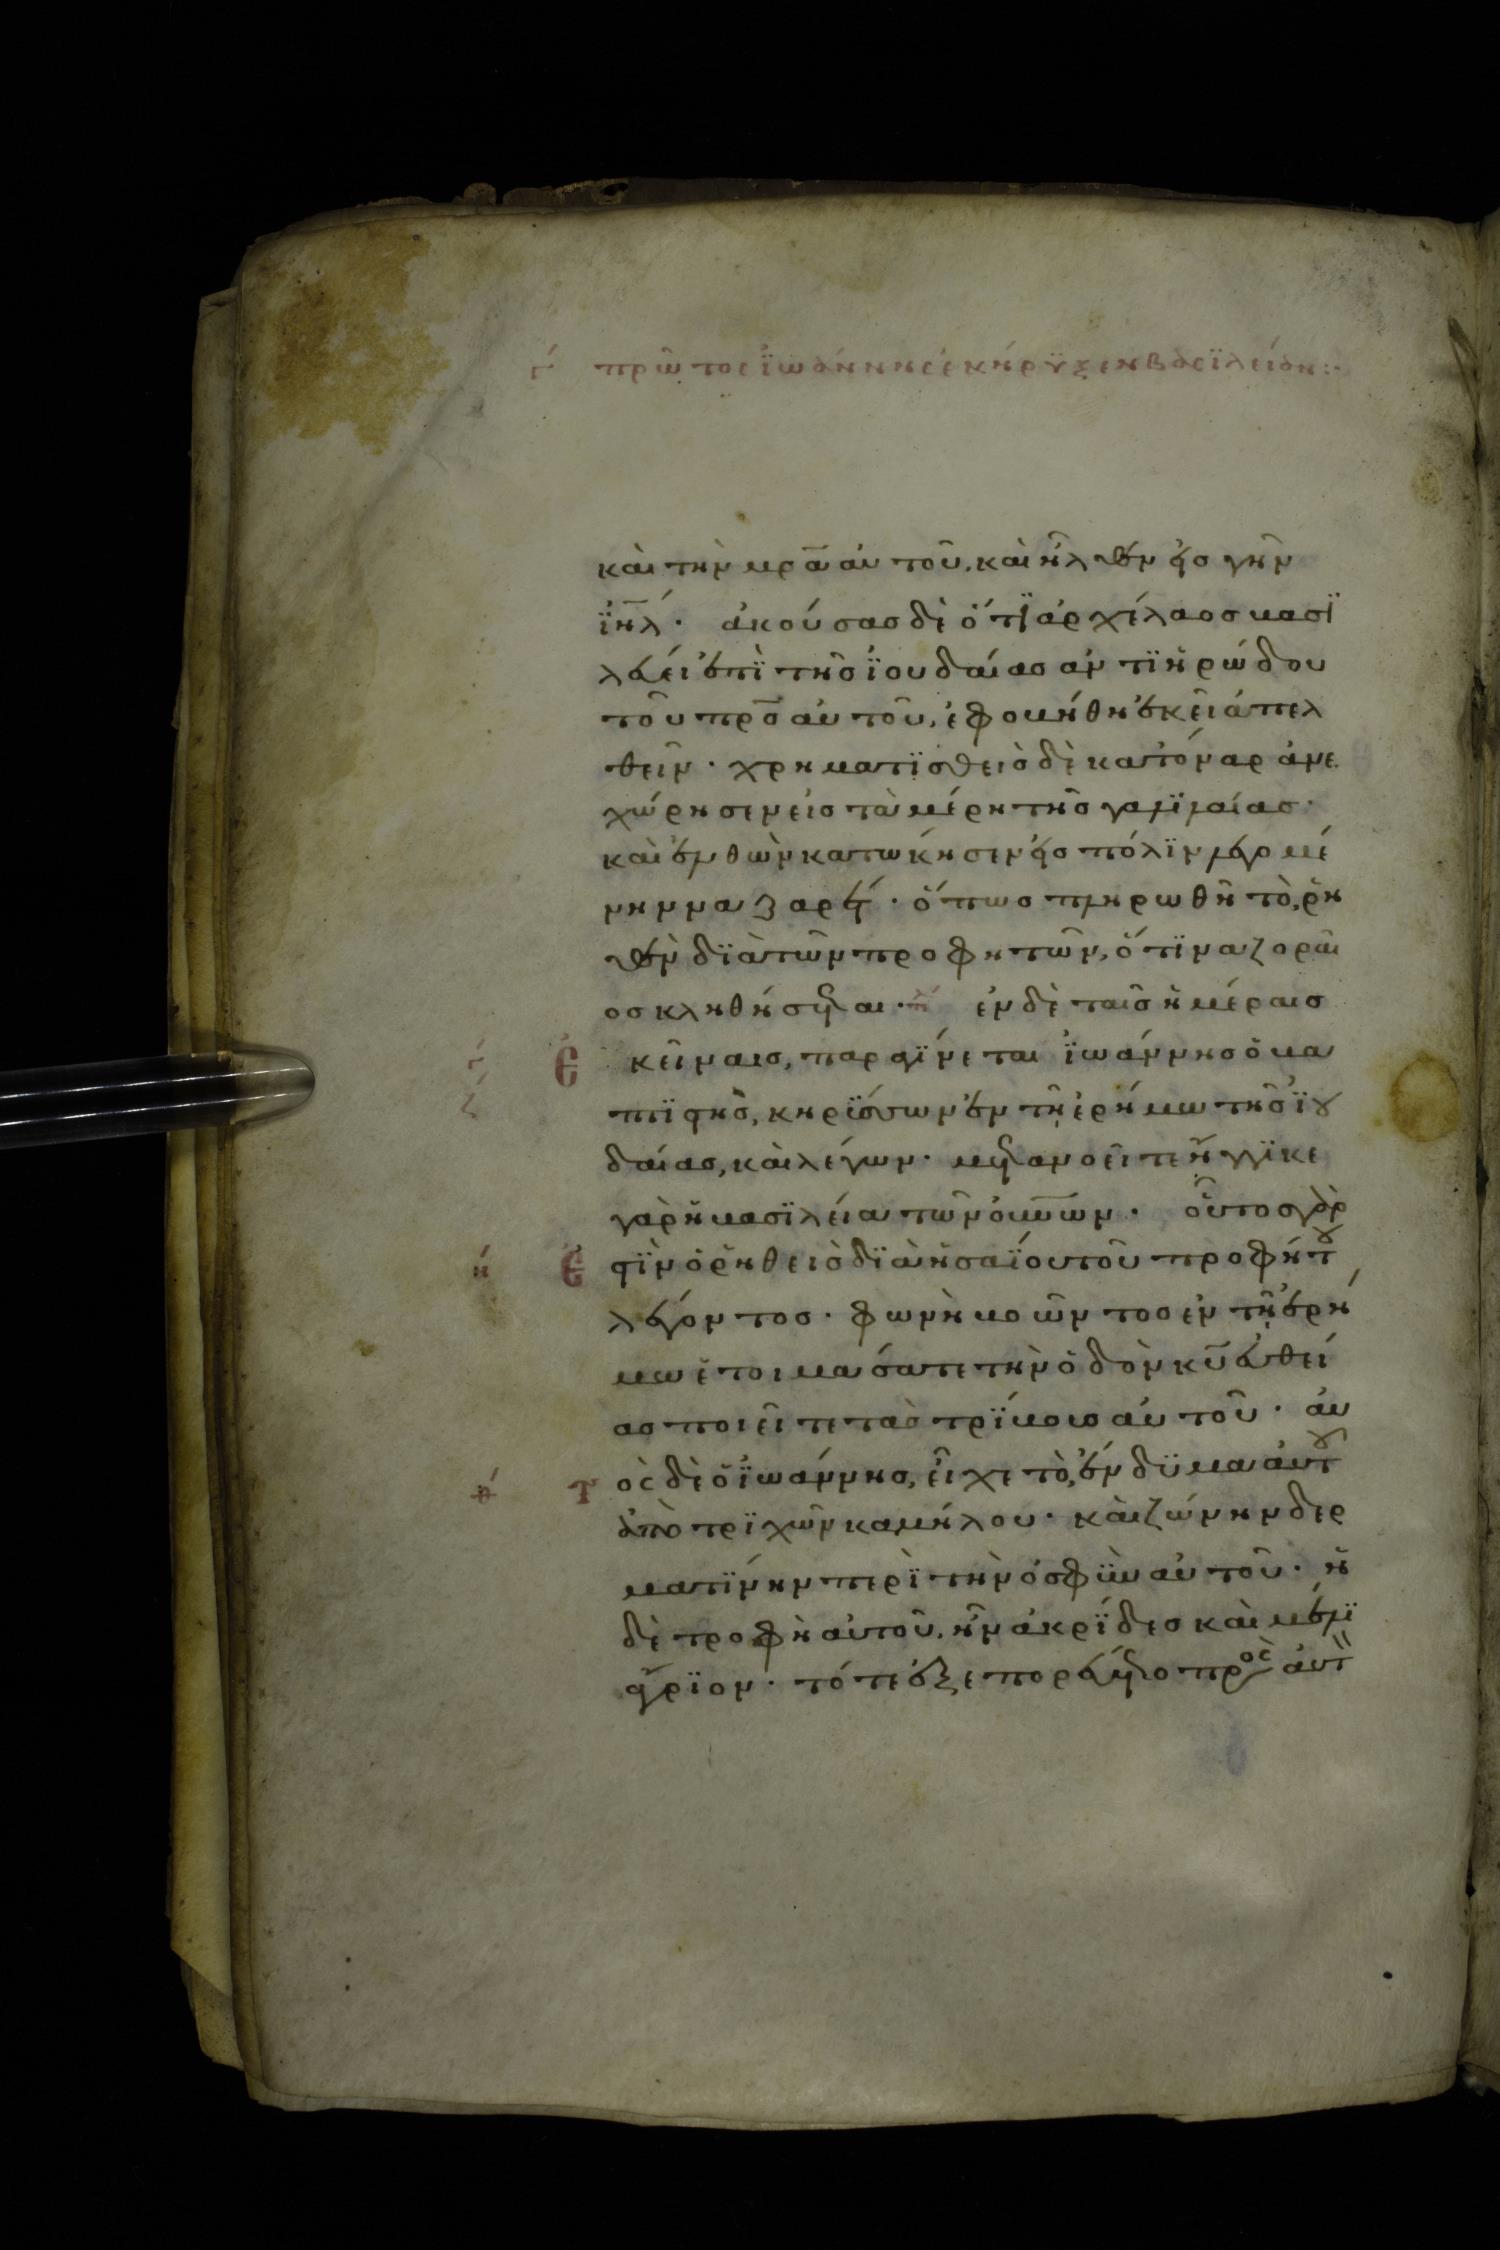 γ´ πρῶτος ἰωάννης ἐκήρυξεν βασϊλείαν:·
καὶ τὴν μρ̅α αὐτοῦ. καὶ ἦλθεν εἰς γῆν
ἰη̅λ· ἀκούσας δὲ ὅτϊ ἀρχέλαος βασϊ
λεύει ἐπϊ τῆς ἰουδαίας ἀντϊ ἡρώδου
τοῦ πρ̅ς αὐτοῦ, ἐφοβήθη ἐκεῖ ἀπελ
θεῖν· χρηματϊσθεὶς δὲ κατόναρ ἀνε
χώρησεν εἰς τὰ μέρη τῆς γαλϊλαίας·
καὶ ἐλθὼν κατώκησεν εἰς πόλϊν λεγομέ
νην ναζαρέτ· ὅπως πληρωθῆ τὸ, ῥη
θὲν δϊὰ τῶν προφητῶν, ὅτϊ ναζοραῖ
ος κληθήσεται· ἐν δὲ ταῖς ἡμέραις
Ἐκεῖναις, παραγϊνεται ἰωάννης ὁ βα
πτϊστὴς, κηρΰσσων ἐν τῆ, ἐρήμω τῆς ἰου
δαίας, καὶ λέγων· μετανοεῖτε ἤγγϊκε
γὰρ ἡ βασϊλεία τῶν οὐν̅ων· οὗτος γὰρ
Ἐστϊν ὁ ῥηθεὶς δϊὰ ἡσαΐου τοῦ προφήτου
λέγοντος· φωνὴ βοῶντος ἐν τῆ, ἐρή
μω ἑτοιμάσατε τὴν ὁδὸν κ̅υ εὐθεί
ας ποιεῖτε τὰς τρϊβους αὐτοῦ· αὐ
Τος δὲ ὁ ἰωάννης, εἶχε τὸ, ἔνδϋμα αὐτοῦ
ἀπὸ τρϊχῶν καμήλου· καὶ ζώνην δερ
ματϊνην περὶ τὴν ὀσφὺν αὐτοῦ· ἡ
δὲ τροφὴ αὐτοῦ. ἦν ἀκρΐδες καὶ μέλϊ
ἄγρϊον· τότε ἐξεπορεύετο πρὸς αὐτὸν